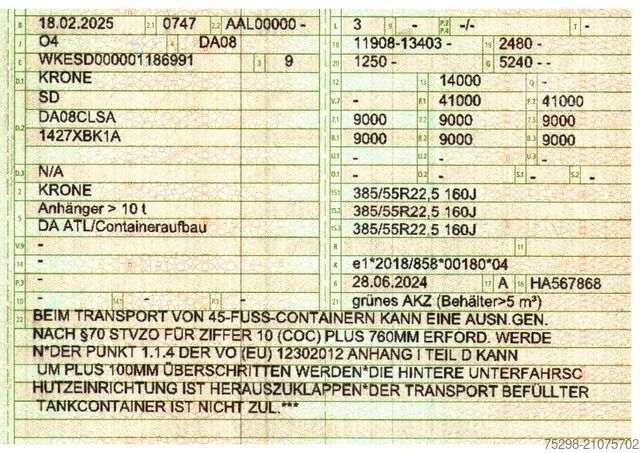 B 18.02.2025 2.1 0747 2.2 AAL00000 - L 3 9 - P.2 P.4 -/- T -
J O4 4 DA08 18 11908-13403 - 19 2480 -
E WKESD000001186991 3 9 20 1250 - G 5240 - -
D.1 KRONE 12 - 13 14000 Q -
SD V.7 - F.1 41000 F.2 41000
D.2 DA08CLSA 7.1 9000 7.2 9000 7.3 9000
1427XBK1A 8.1 9000 8.2 9000 8.3 9000
U.1 - U.2 - U.3 -
D.3 N/A O.1 - O.2 - S.1 - S.2 -
2 KRONE 15.1 385/55R22,5 160J
5 Anhänger > 10 t 15.2 385/55R22,5 160J
DA ATL/Containeraufbau 15.3 385/55R22,5 160J
V.9 - R - 11 -
14 - K e1*2018/858*00180*04
P.3 - 6 28.06.2024 17 A 16 HA567868
10 - 14.1 - P.1 - 21 grünes AKZ (Behälter>5 m³)
22 BEIM TRANSPORT VON 45-FUSS-CONTAINERN KANN EINE AUSN.GEN.
NACH §70 STVZO FÜR ZIFFER 10 (COC) PLUS 760MM ERFORD. WERDE
N*DER PUNKT 1.1.4 DER VO (EU) 12302012 ANHANG I TEIL D KANN
UM PLUS 100MM ÜBERSCHRITTEN WERDEN*DIE HINTERE UNTERFAHRSC
HUTZEINRICHTUNG IST HERAUSZUKLAPPEN*DER TRANSPORT BEFÜLLTER
TANKCONTAINER IST NICHT ZUL.***
75298-21075702